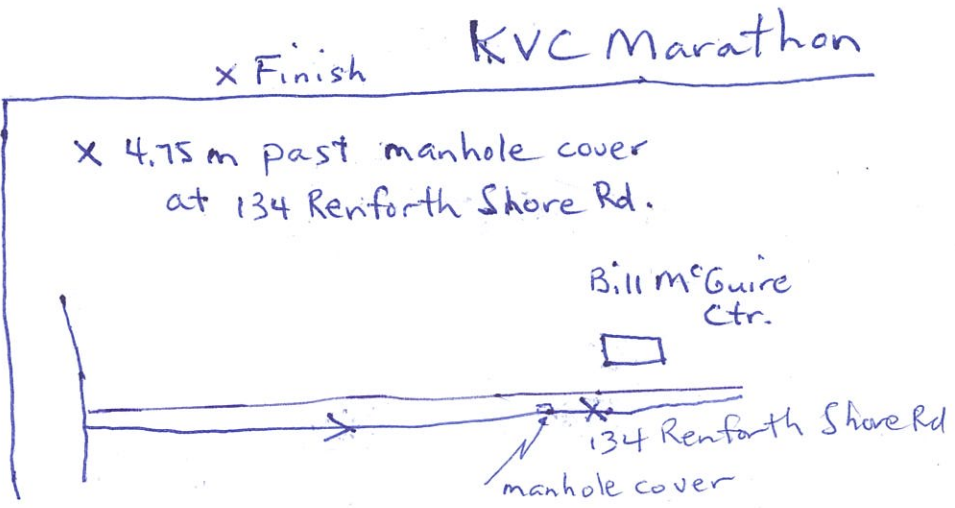 KVC Marathon
x Finish
x 4.75 m past manhole cover
at 134 Renforth Shore Rd.
Bill McGuire
Ctr.
134 Renforth Shore Rd
manhole cover